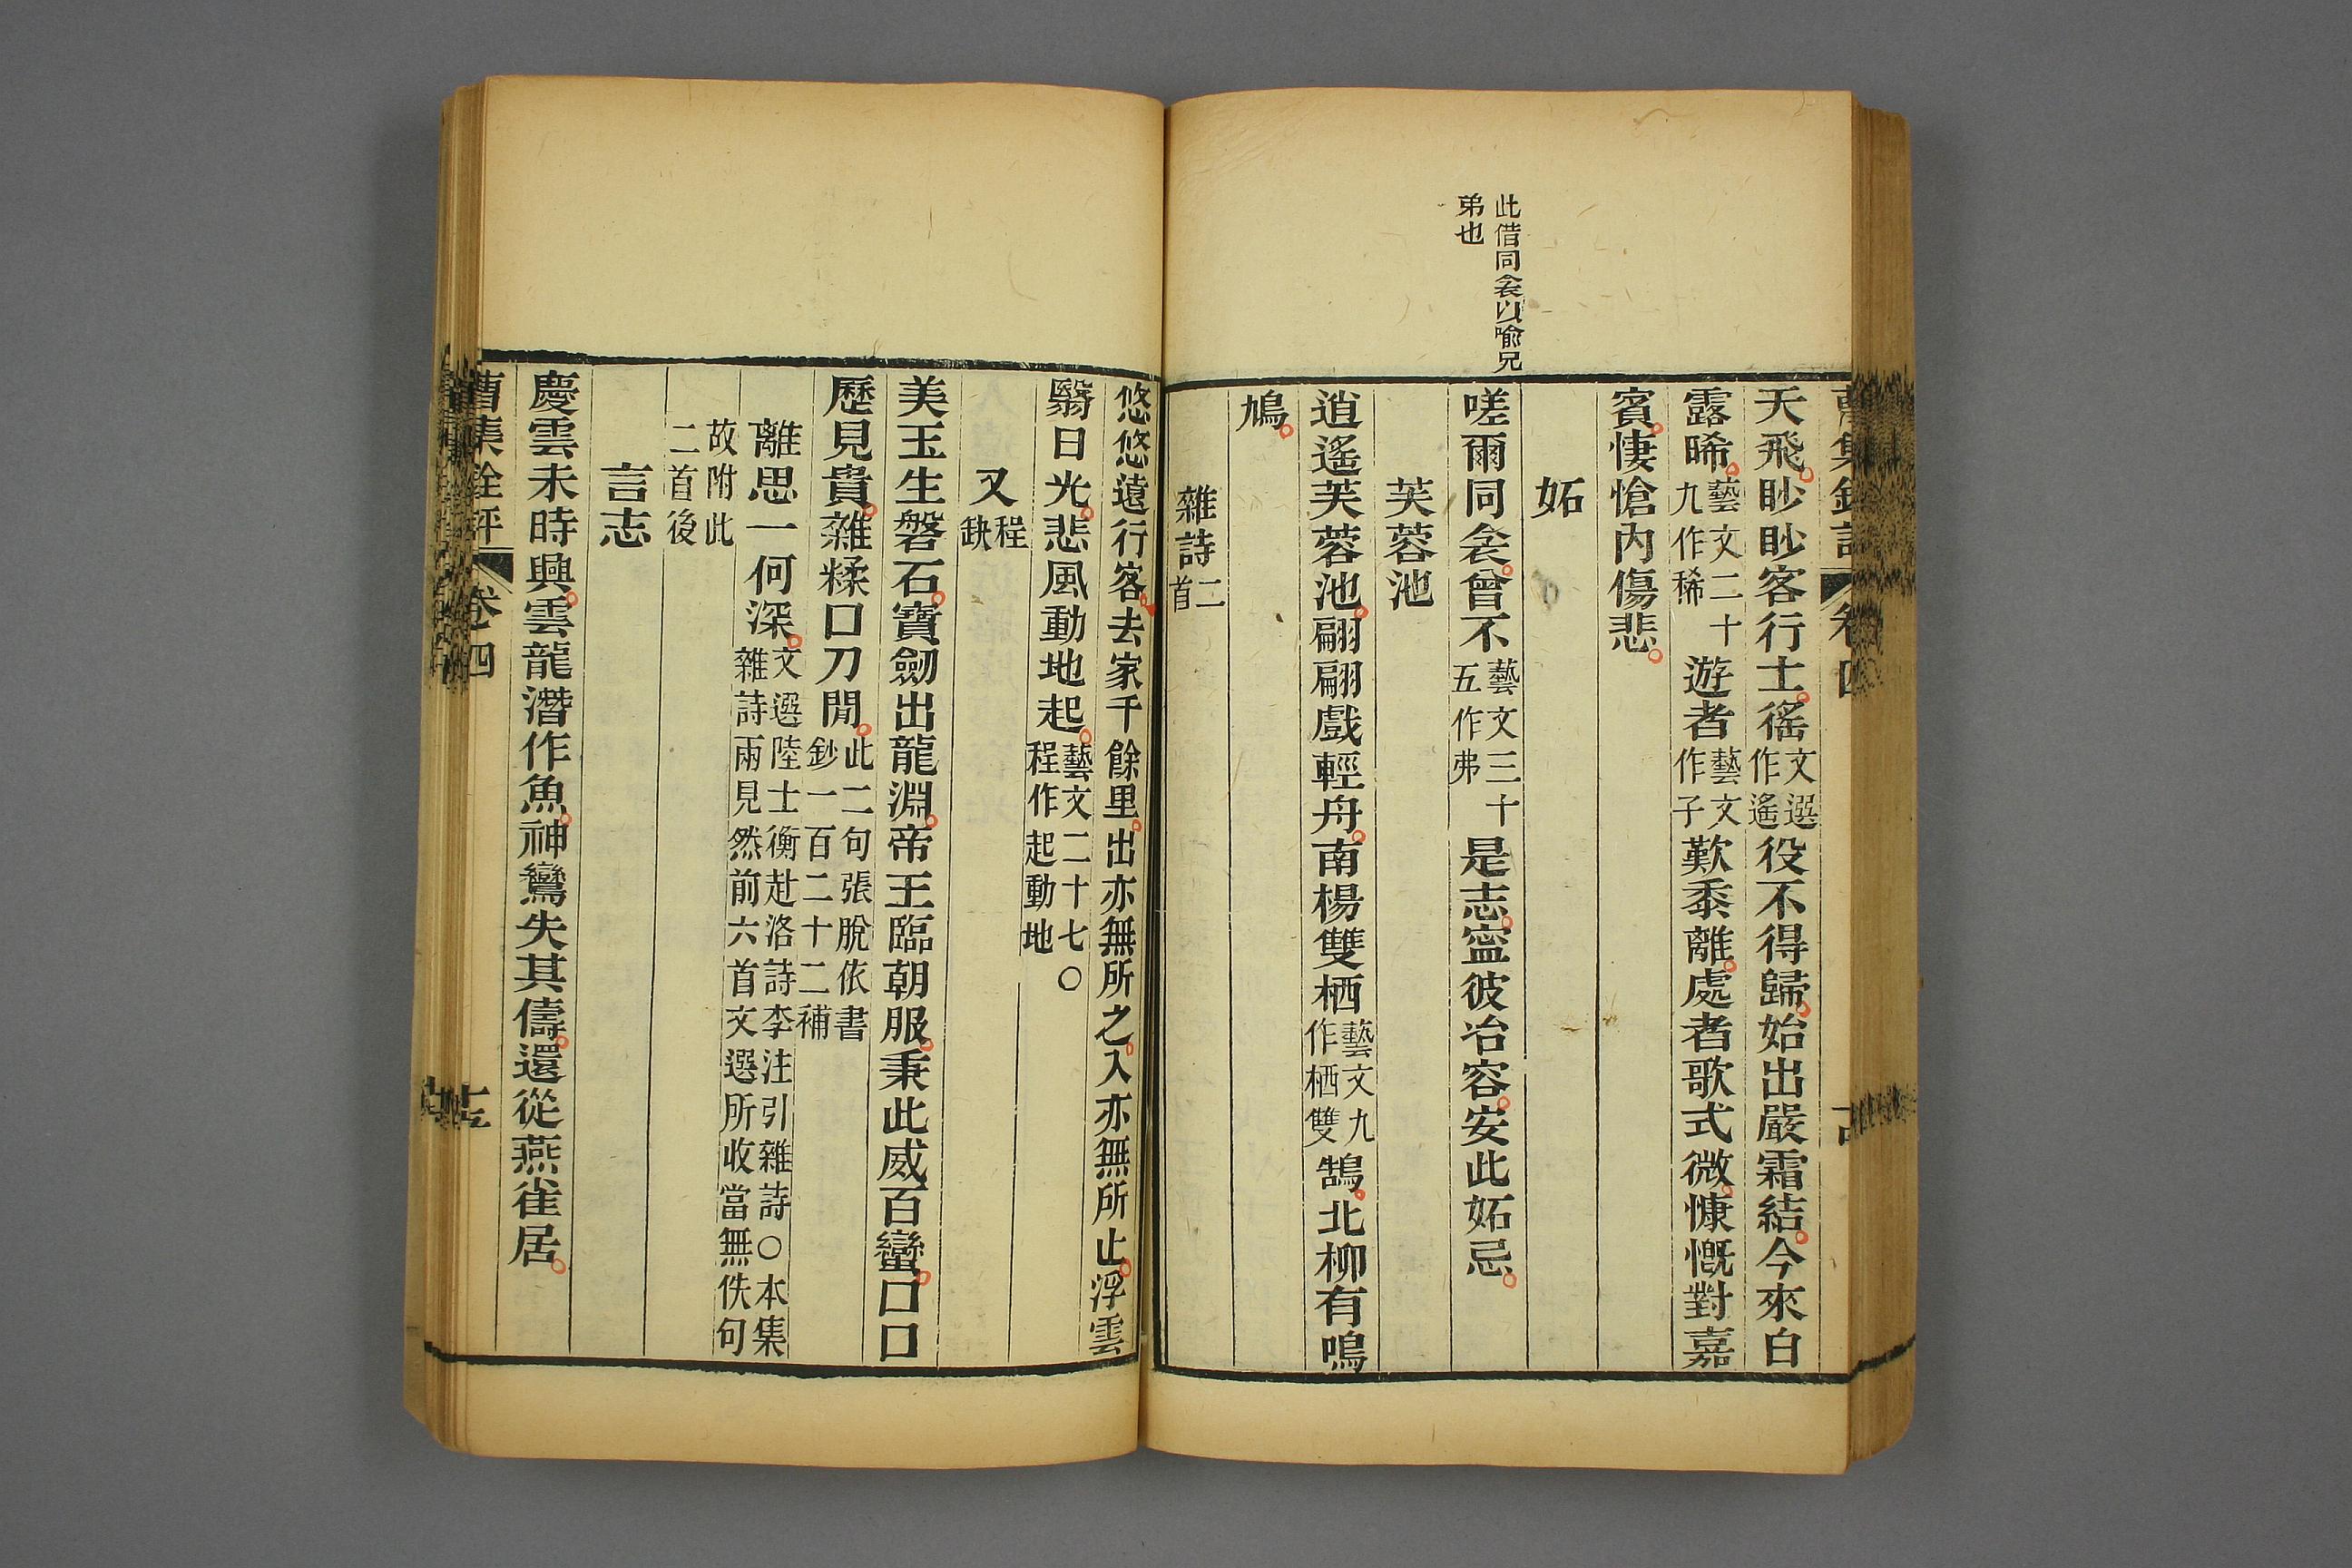 此借同衾以喻兄
弟也
天飛眇眇客行士徭文選作遙役不得歸始出嚴霜結今來白
露晞藝文二十九作稀遊者藝文作子歎黍離處者歌式微慷慨對嘉
賓悽愴內傷悲
妬
嗟爾同衾曾不藝文三十五作弗是志寍彼冶容安此妬忌
芙蓉池
逍遙芙蓉池翩翩戲輕舟南楊雙栖藝文九作栖雙鵠北柳有鳴
鳩
雜詩二首
悠悠遠行客去家千餘里出亦無所之入亦無所止浮雲
翳日光悲風動地起藝文二十七〇程作起動地
又程缺
美玉生磐石寶劒出龍淵帝王臨朝服秉此威百蠻口口
歷見貴雜糅口刀閒此二句張脫依書鈔一百二十二補
離思一何深文選陸士衡赴洛詩李注引雜詩〇本集雜詩兩見然前六首文選所收當無佚句
故附此二首後
言志
慶雲未時興雲龍潛作魚神鸞失其儔還從燕雀居
曹集銓評 卷四